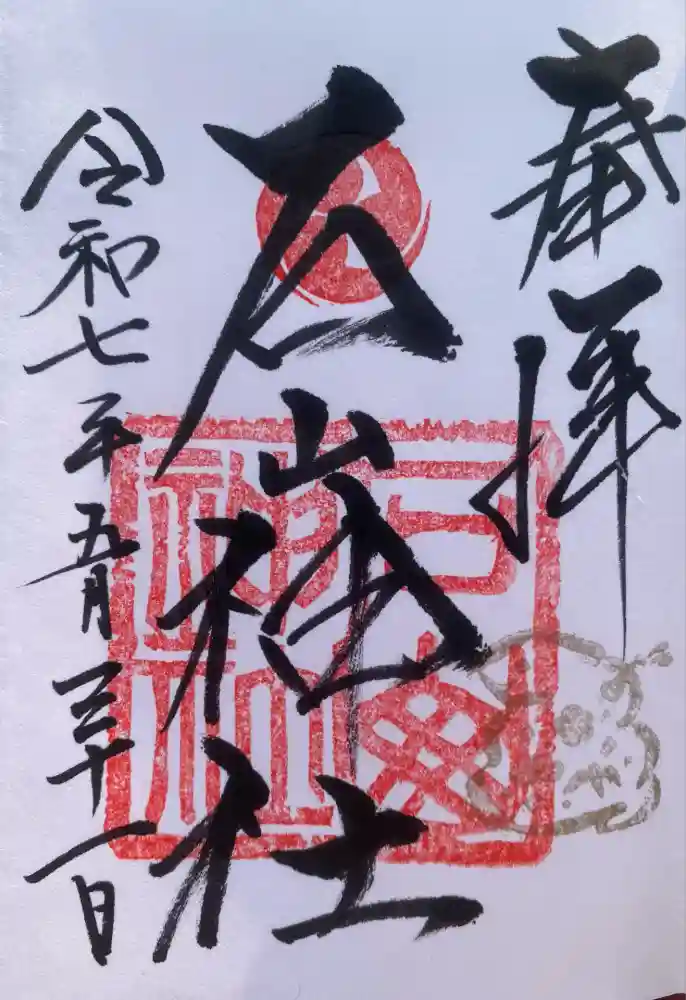 奉拝
石山神社
令和七年五月三十一日